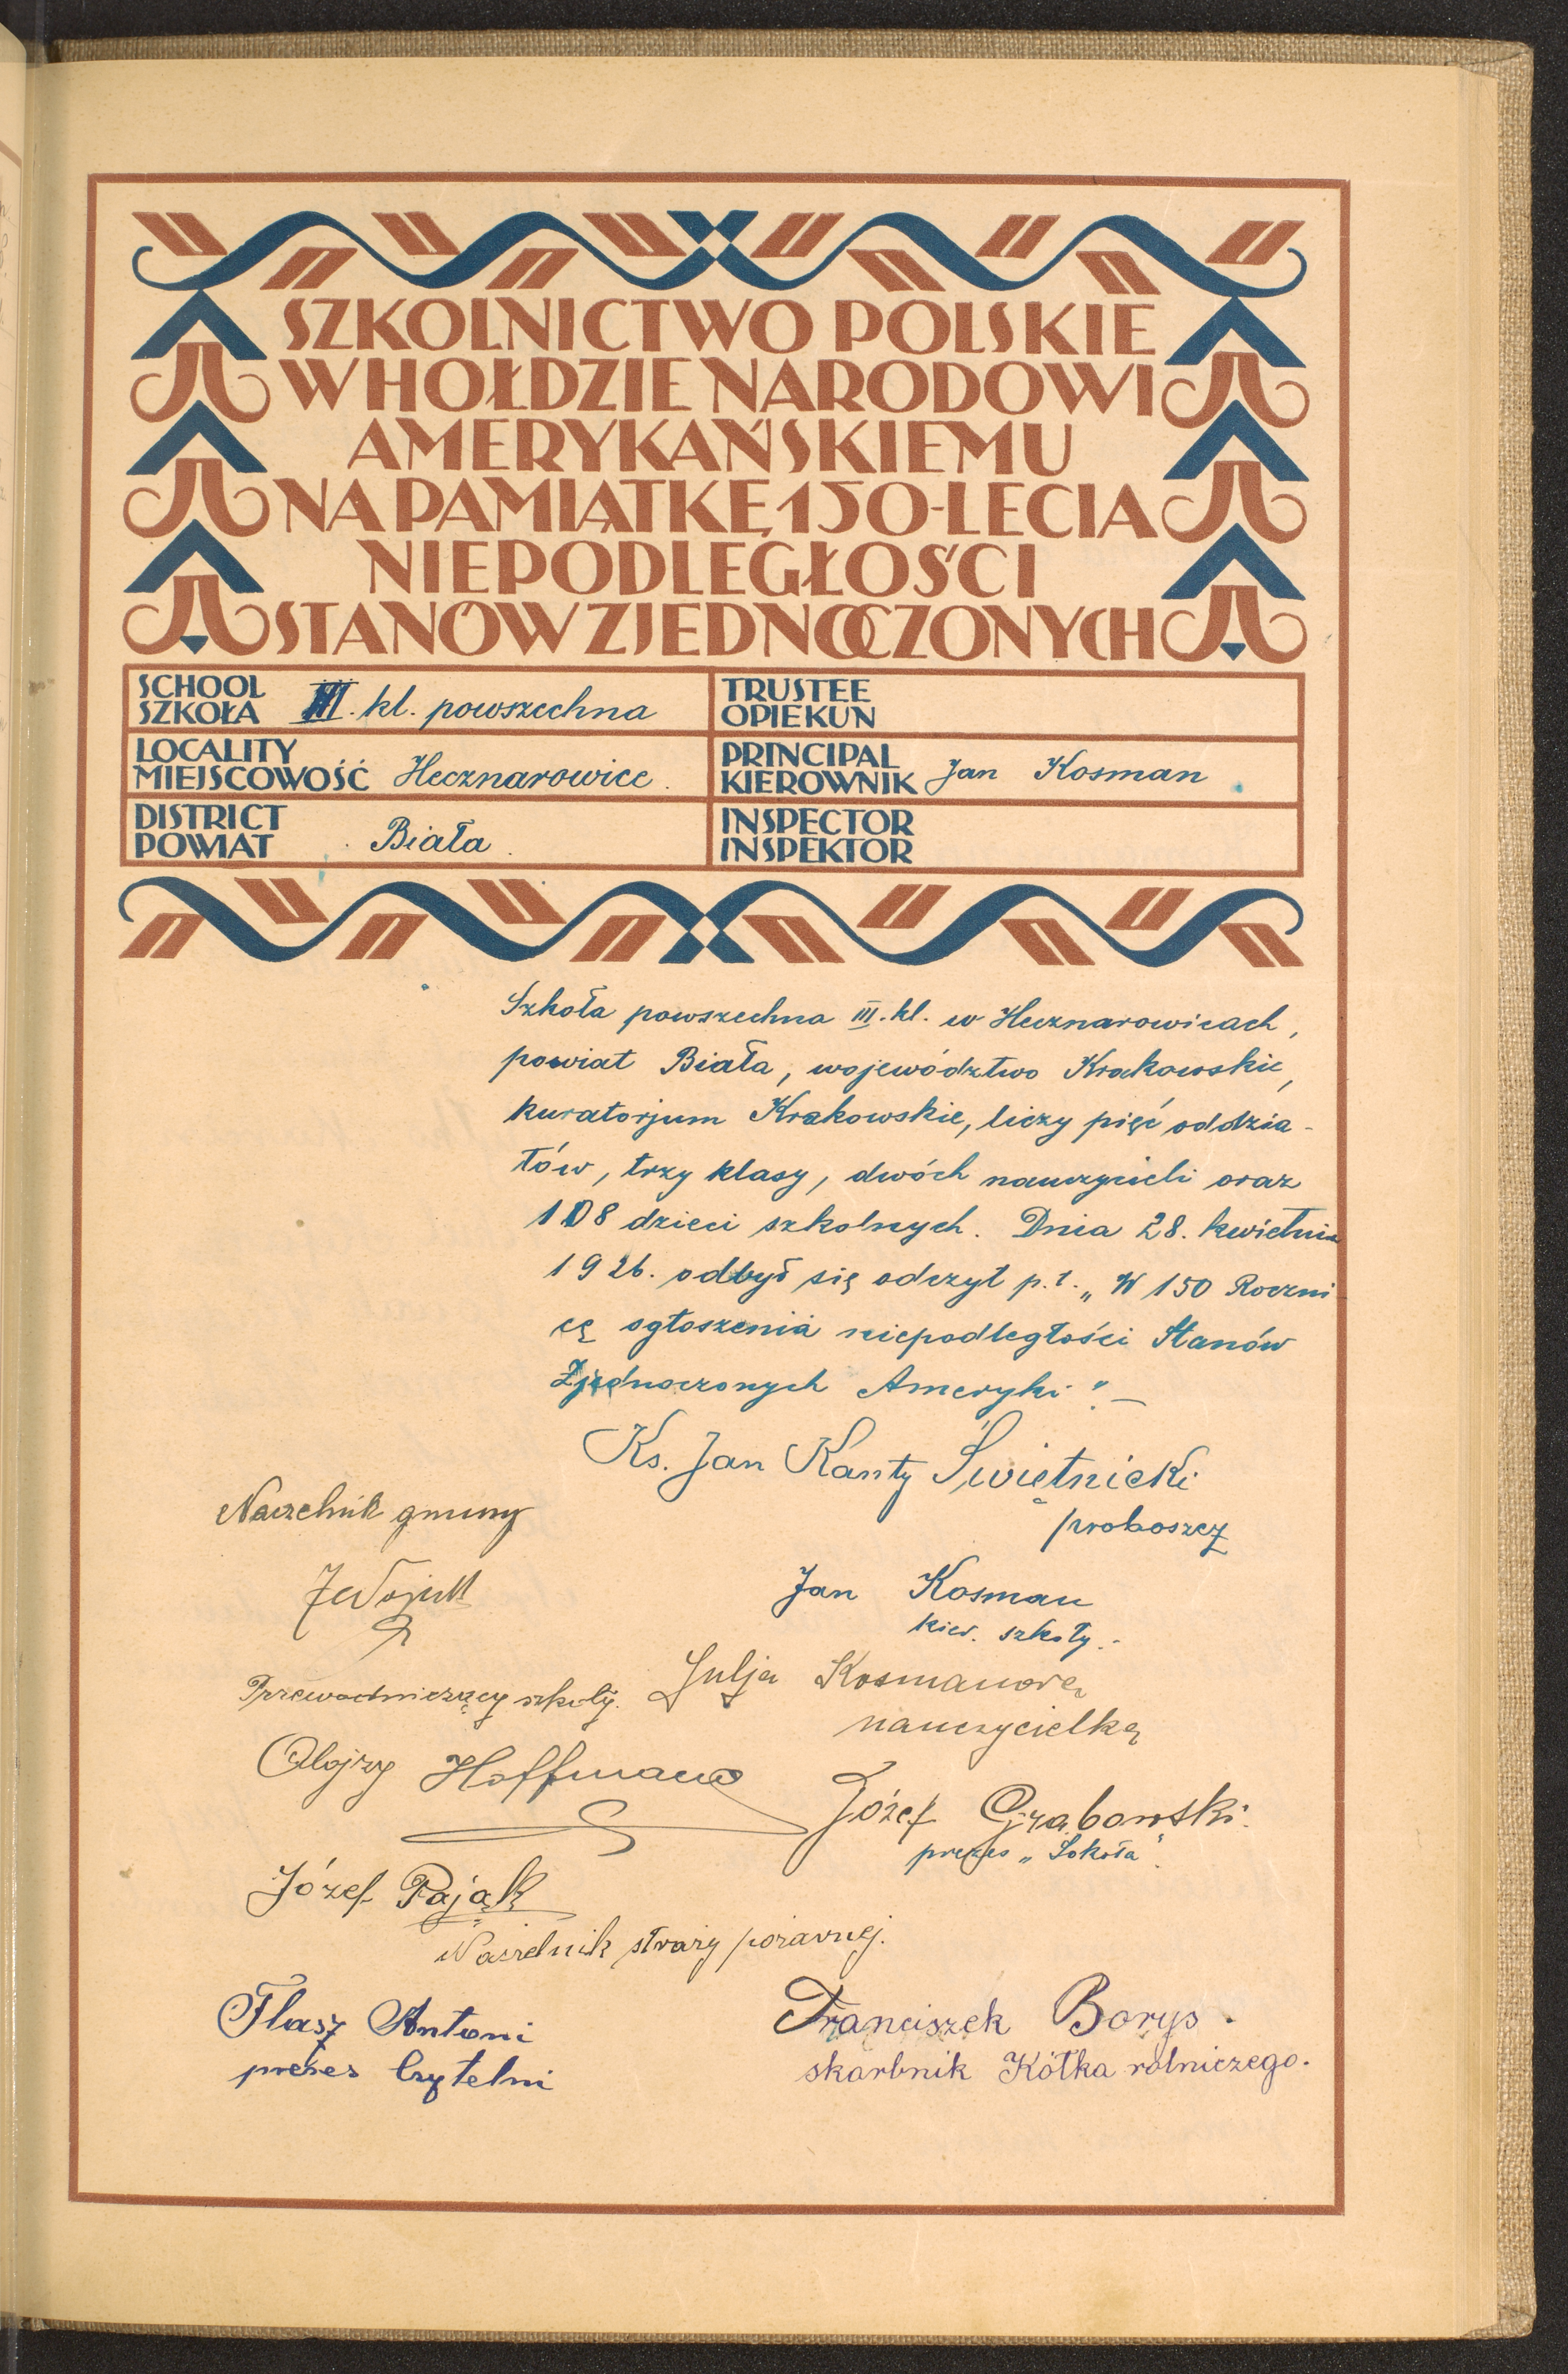 SZKOLNICTWO POLSKIE
W HOŁDZIE NARODOWI
AMERYKAŃSKIEMU
NA PAMIĄTKĘ 150-LECIA
NIEPODLEGŁOŚCI
STANÓW ZJEDNOCZONYCH
SCHOOL
SZKOŁA III. kl. powszechna
TRUSTEE
OPIEKUN
LOCALITY
MIEJSCOWOŚĆ Hecznarowice.
PRINCIPAL
KIEROWNIK Jan Kosman
DISTRICT
POWIAT Biała.
INSPECTOR
INSPEKTOR
Szkoła powszechna III. kl. w Hecznarowicach,
powiat Biała, województwo Krakowskie,
kuratorjum Krakowskie, liczy pięć oddzia-
łów, trzy klasy, dwóch nauczycieli oraz
108 dzieci szkolnych. Dnia 28. kwietnia
1926. odbył się odczyt p.t. „W 150 Roczni
cę ogłoszenia niepodległości Stanów
Zjednoczonych Ameryki". —
Ks. Jan Kanty Świętnicki
proboszcz
Naczelnik gminy
Jan Kosman
kier. szkoły.-
Przewodniczący szkoły.
Julja Kosmanowa
nauczycielka
Alojzy Hoffmann
Józef Grabowski.
prezes „Sokoła".
Józef Pająk
Naczelnik straży pożarnej.
Flasz Antoni
prezes Czytelni
Franciszek Borys.
skarbnik Kółka rolniczego.